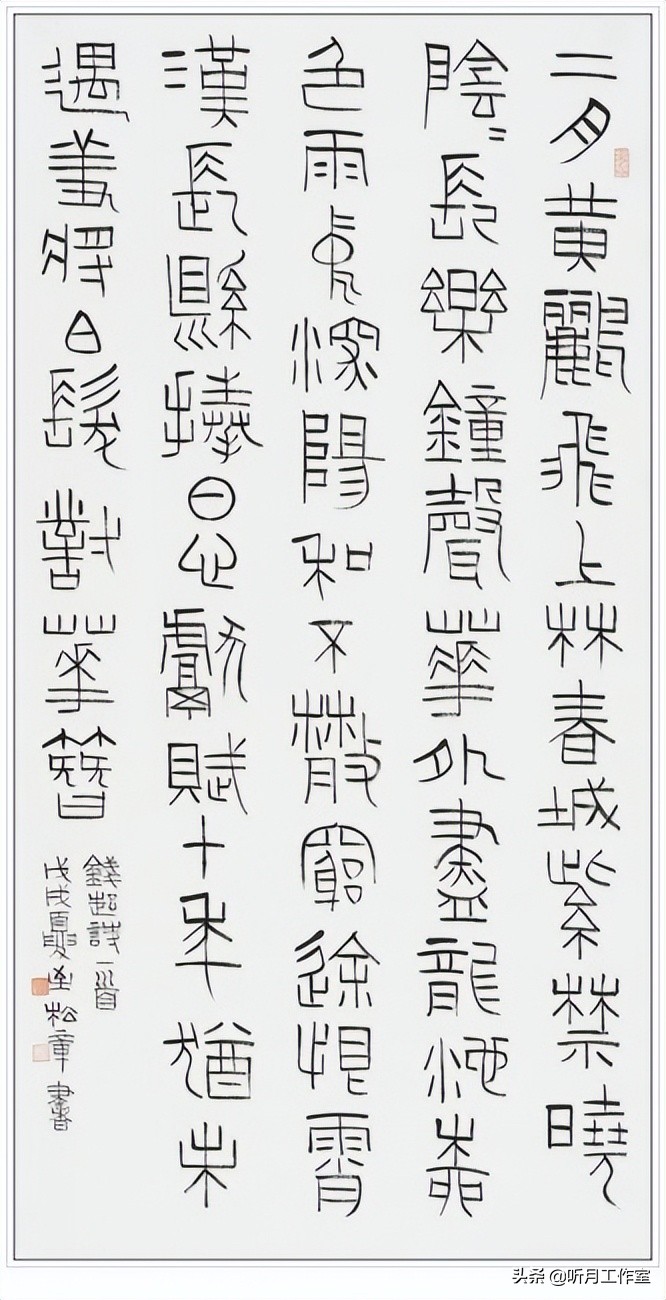 二月黃鸝飛上林春城紫禁曉
陰〻長樂鐘聲華外盡龍池柳
色雨中深陽和不散窮途恨霄
漢長懸捧日心獻賦十年猶未
遇羞將白髮對華簪
錢起詩一首
戊戌夏松章書
头条 @听月工作室